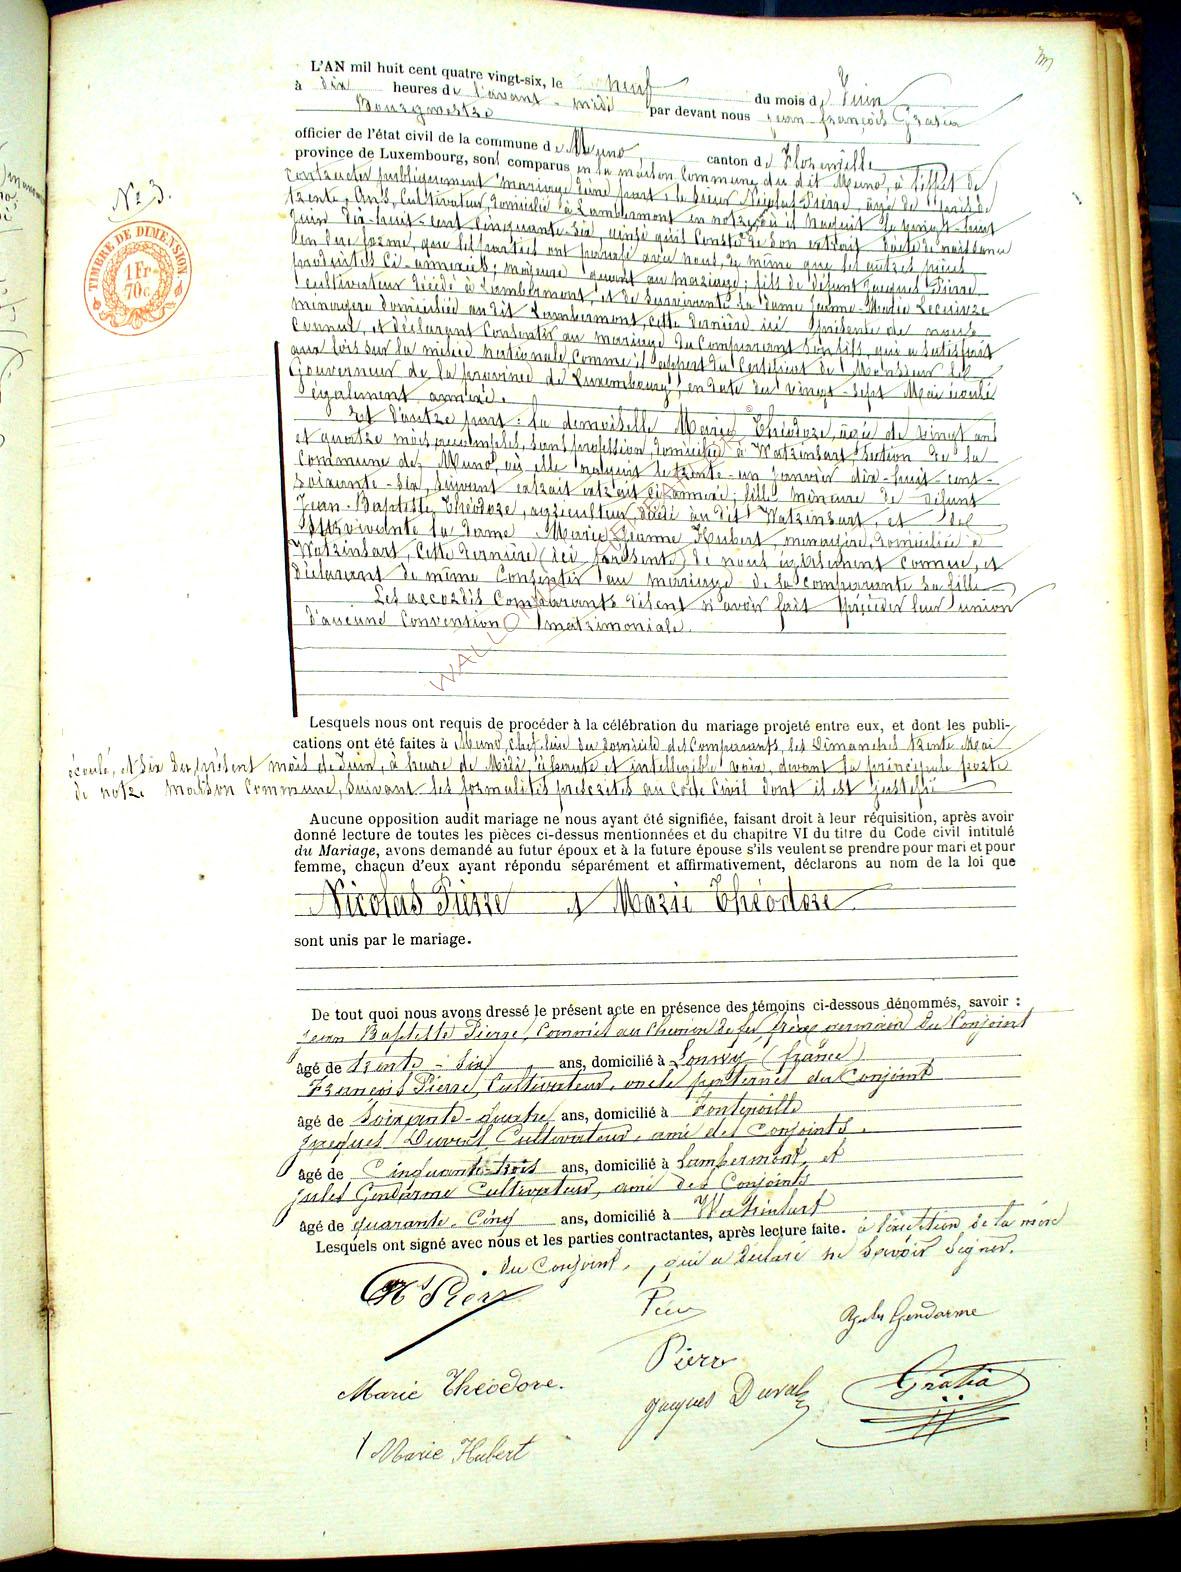 L'AN mil huit cent quatre vingt-six, le neuf du mois de Juin
à dix heures de l'avant-midi par devant nous Jean-François Gratia
Bourgmestre
officier de l'état civil de la commune de Muno canton de Florenville
province de Luxembourg, sont comparus en la maison Commune du dit Muno, à l'effet de
contracter publiquement mariage d'une part: le sieur Nicolas Pierre, âgé de près de
trente ans, Cultivateur, domicilié à Lambermont en notre où il naquit le vingt-huit
Juin dix-huit-cent cinquante-six ainsi qu'il Conste de son extrait d'acte de naissance
en due forme, que les parties ont paraphé avec nous, de même que les autres pièces
produites ci-annexées; majeur quant au mariage; fils de défunt Jacques Pierre
cultivateur décédé à Lambermont, et de survivante la dame Jeanne-Marie Lecuivre
ménagère domiciliée au dit Lambermont, cette dernière ici présente de nous
Connue, et déclarant Consentir au mariage du Comparant son fils, qui a satisfait
aux lois sur la milice nationale comme il appert du Certificat de Monsieur le
Gouverneur de la province de Luxembourg, en date du vingt-sept Mai écoulé
également annexé.
Et d'autre part: la demoiselle Marie Théodore, âgée de vingt ans
et quatre mois accomplis, sans profession, domiciliée à Watrinsart, section de la
Commune de Muno, où elle naquit le trente-un janvier dix-huit-cent-
soixante-six, suivant extrait extrait ci-annexé; fille mineure de défunt
Jean-Baptiste Théodore, agriculteur, décédé au dit Watrinsart, et de
survivante la dame Marie Jeanne Hubert, ménagère, domiciliée à
Watrinsart, Cette dernière (ici présente) de nous également connue, et
déclarant de même Consentir au mariage de la comparante sa fille
Les accordés Comparants disent n'avoir fait précéder leur union
d'aucune Convention matrimoniale.
N° 3.
TIMBRE DE DIMENSION
1 Fr
70c
WALLO
Lesquels nous ont requis de procéder à la célébration du mariage projeté entre eux, et dont les publi-
cations ont été faites à Muno, chef-lieu du domicile des Comparants, les Dimanches trente Mai
écoulé, et six du présent mois de Juin, à heure de Midi, à haute et intelligible voix, devant la principale porte
de notre maison Commune, suivant les formalités prescrites au Code Civil dont il est justifié
Aucune opposition audit mariage ne nous ayant été signifiée, faisant droit à leur réquisition, après avoir
donné lecture de toutes les pièces ci-dessus mentionnées et du chapitre VI du titre du Code civil intitulé
du Mariage, avons demandé au futur époux et à la future épouse s'ils veulent se prendre pour mari et pour
femme, chacun d'eux ayant répondu séparément et affirmativement, déclarons au nom de la loi que
Nicolas Pierre et Marie Théodore
sont unis par le mariage.
De tout quoi nous avons dressé le présent acte en présence des témoins ci-dessous dénommés, savoir :
Jean Baptiste Pierre, Commis au chemin de fer, frère germain du Conjoint
âgé de trente-six ans, domicilié à Longwy (france)
François Pierre, Cultivateur, oncle paternel du Conjoint
âgé de soixante-quatre ans, domicilié à Fontenoille
Jacques Duval Cultivateur, ami des Conjoints.
âgé de Cinquante-trois ans, domicilié à Lambermont, et
Jules Gendarme Cultivateur, ami des Conjoints
âgé de quarante-Cinq ans, domicilié à Watrinsart
Lesquels ont signé avec nous et les parties contractantes, après lecture faite. à l'exception de la mère
du Conjoint, qui a déclaré ne savoir signer.
Ns Pierre
Pierre
Jules Gendarme
Pierre
Marie Théodore.
Jacques Duval
Gratia
Marie Hubert